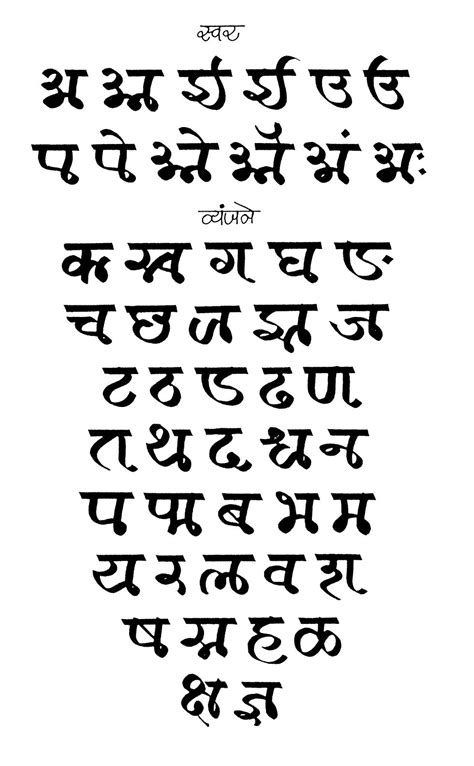 स्वर
अ आ इ ई उ ऊ
ए ऐ ओ औ अं अः
व्यंजने
क ख ग घ ङ
च छ ज झ ञ
ट ठ ड ढ ण
त थ द ध न
प फ ब भ म
य र ल व श
ष स ह ळ
क्ष ज्ञ